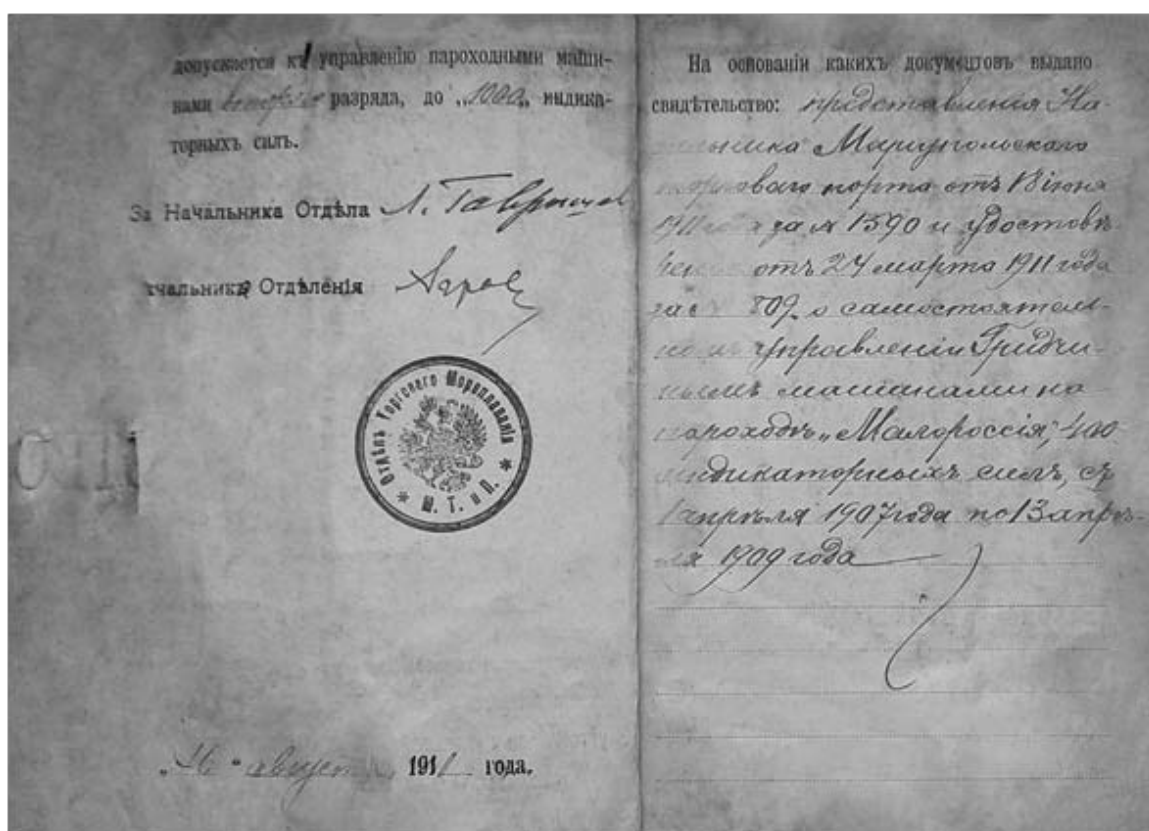 допускается къ управленію пароходными маши-
нами второго разряда, до „1000„ индика-
торныхъ силъ.
За Начальника Отдѣла Л. Гавришев
чальника Отдѣленія
Отдѣлъ Торговаго Мореплаванія
М. Т. и П.
августа 1911 года.
На основаніи какихъ документовъ выдано
свидѣтельство: представленія На-
чальника Маріупольскаго
торговаго порта отъ 18 іюня
1911 года за № 1590 и удостовѣ-
отъ 24 марта 1911 года
за № 809, о самостоятель-
номъ управленіи Гридчи-
нымъ машинами на
пароходѣ „Малороссія", 400
индикаторныхъ силъ, съ
1 апрѣля 1907 года по 13 апрѣ-
ля 1909 года